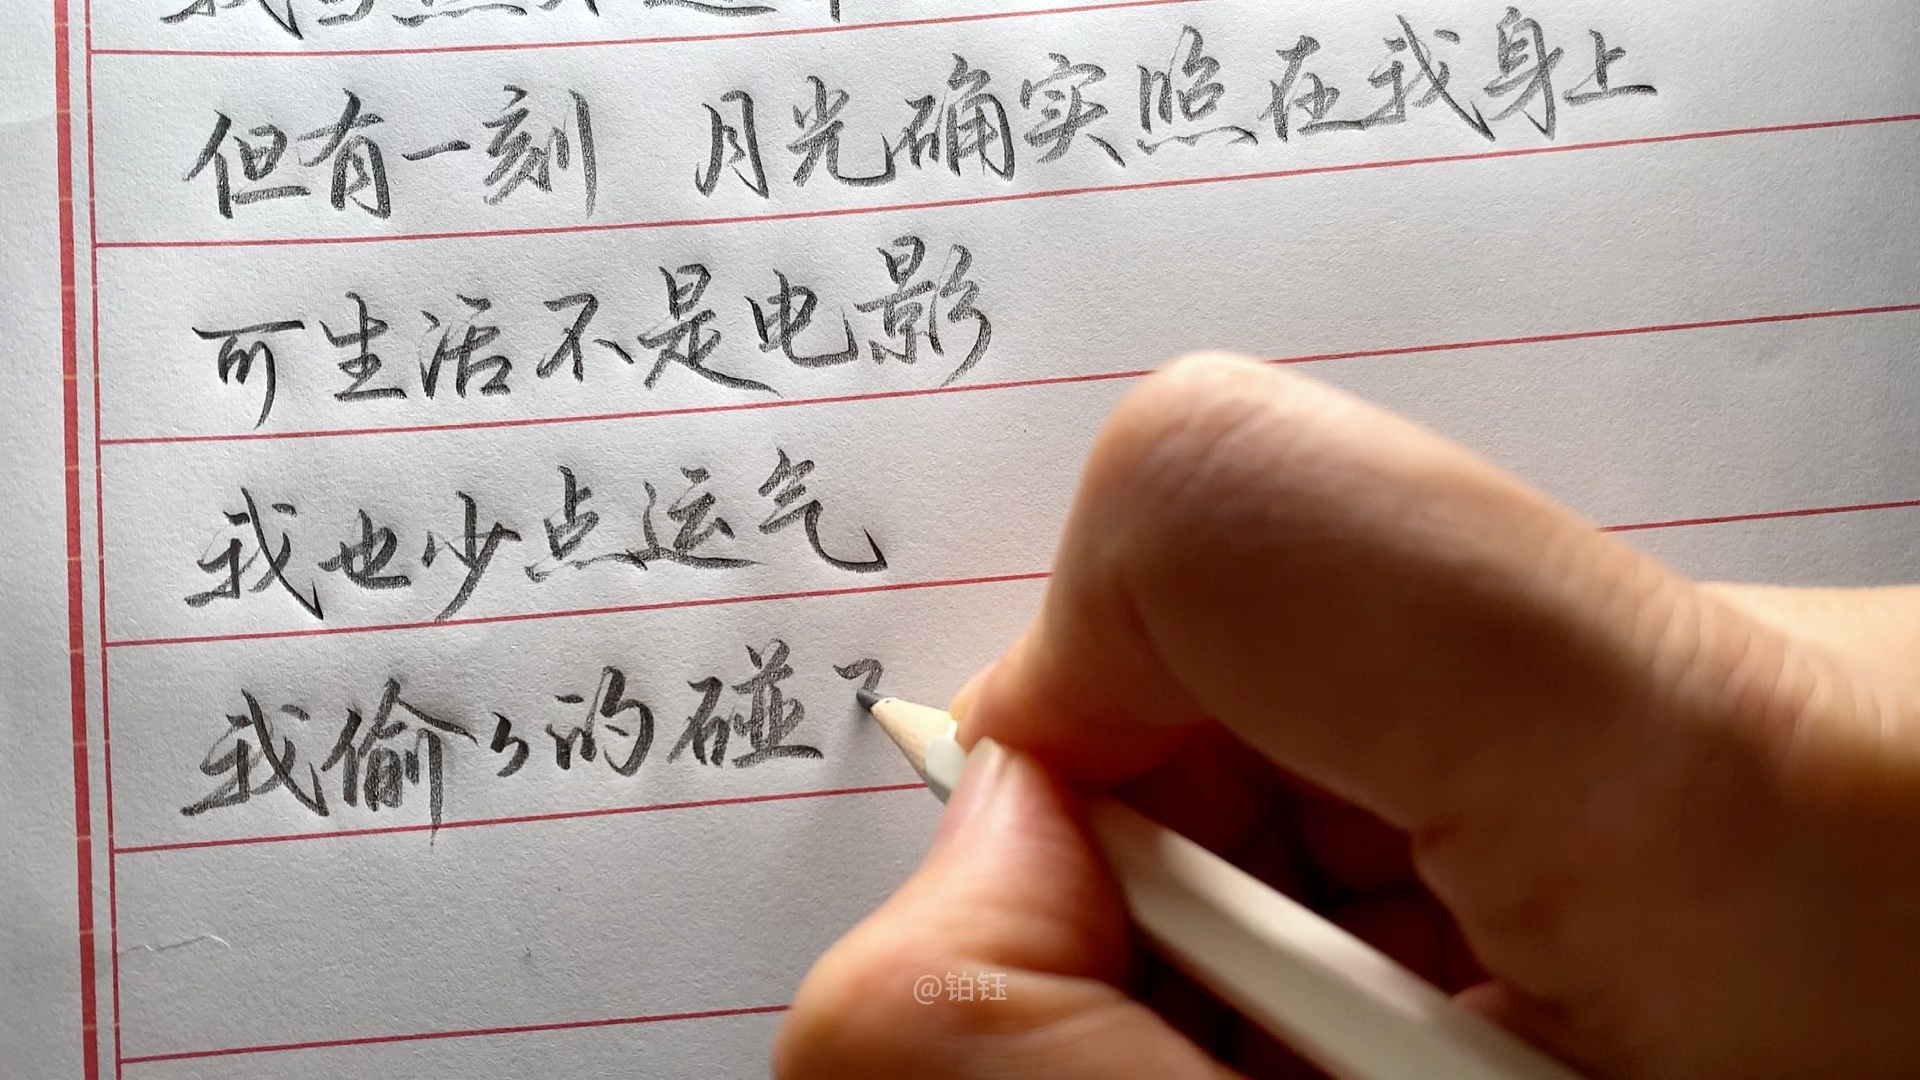 但有一刻 月光确实照在我身上
可生活不是电影
我也少点运气
我偷々的碰了
@铂钰